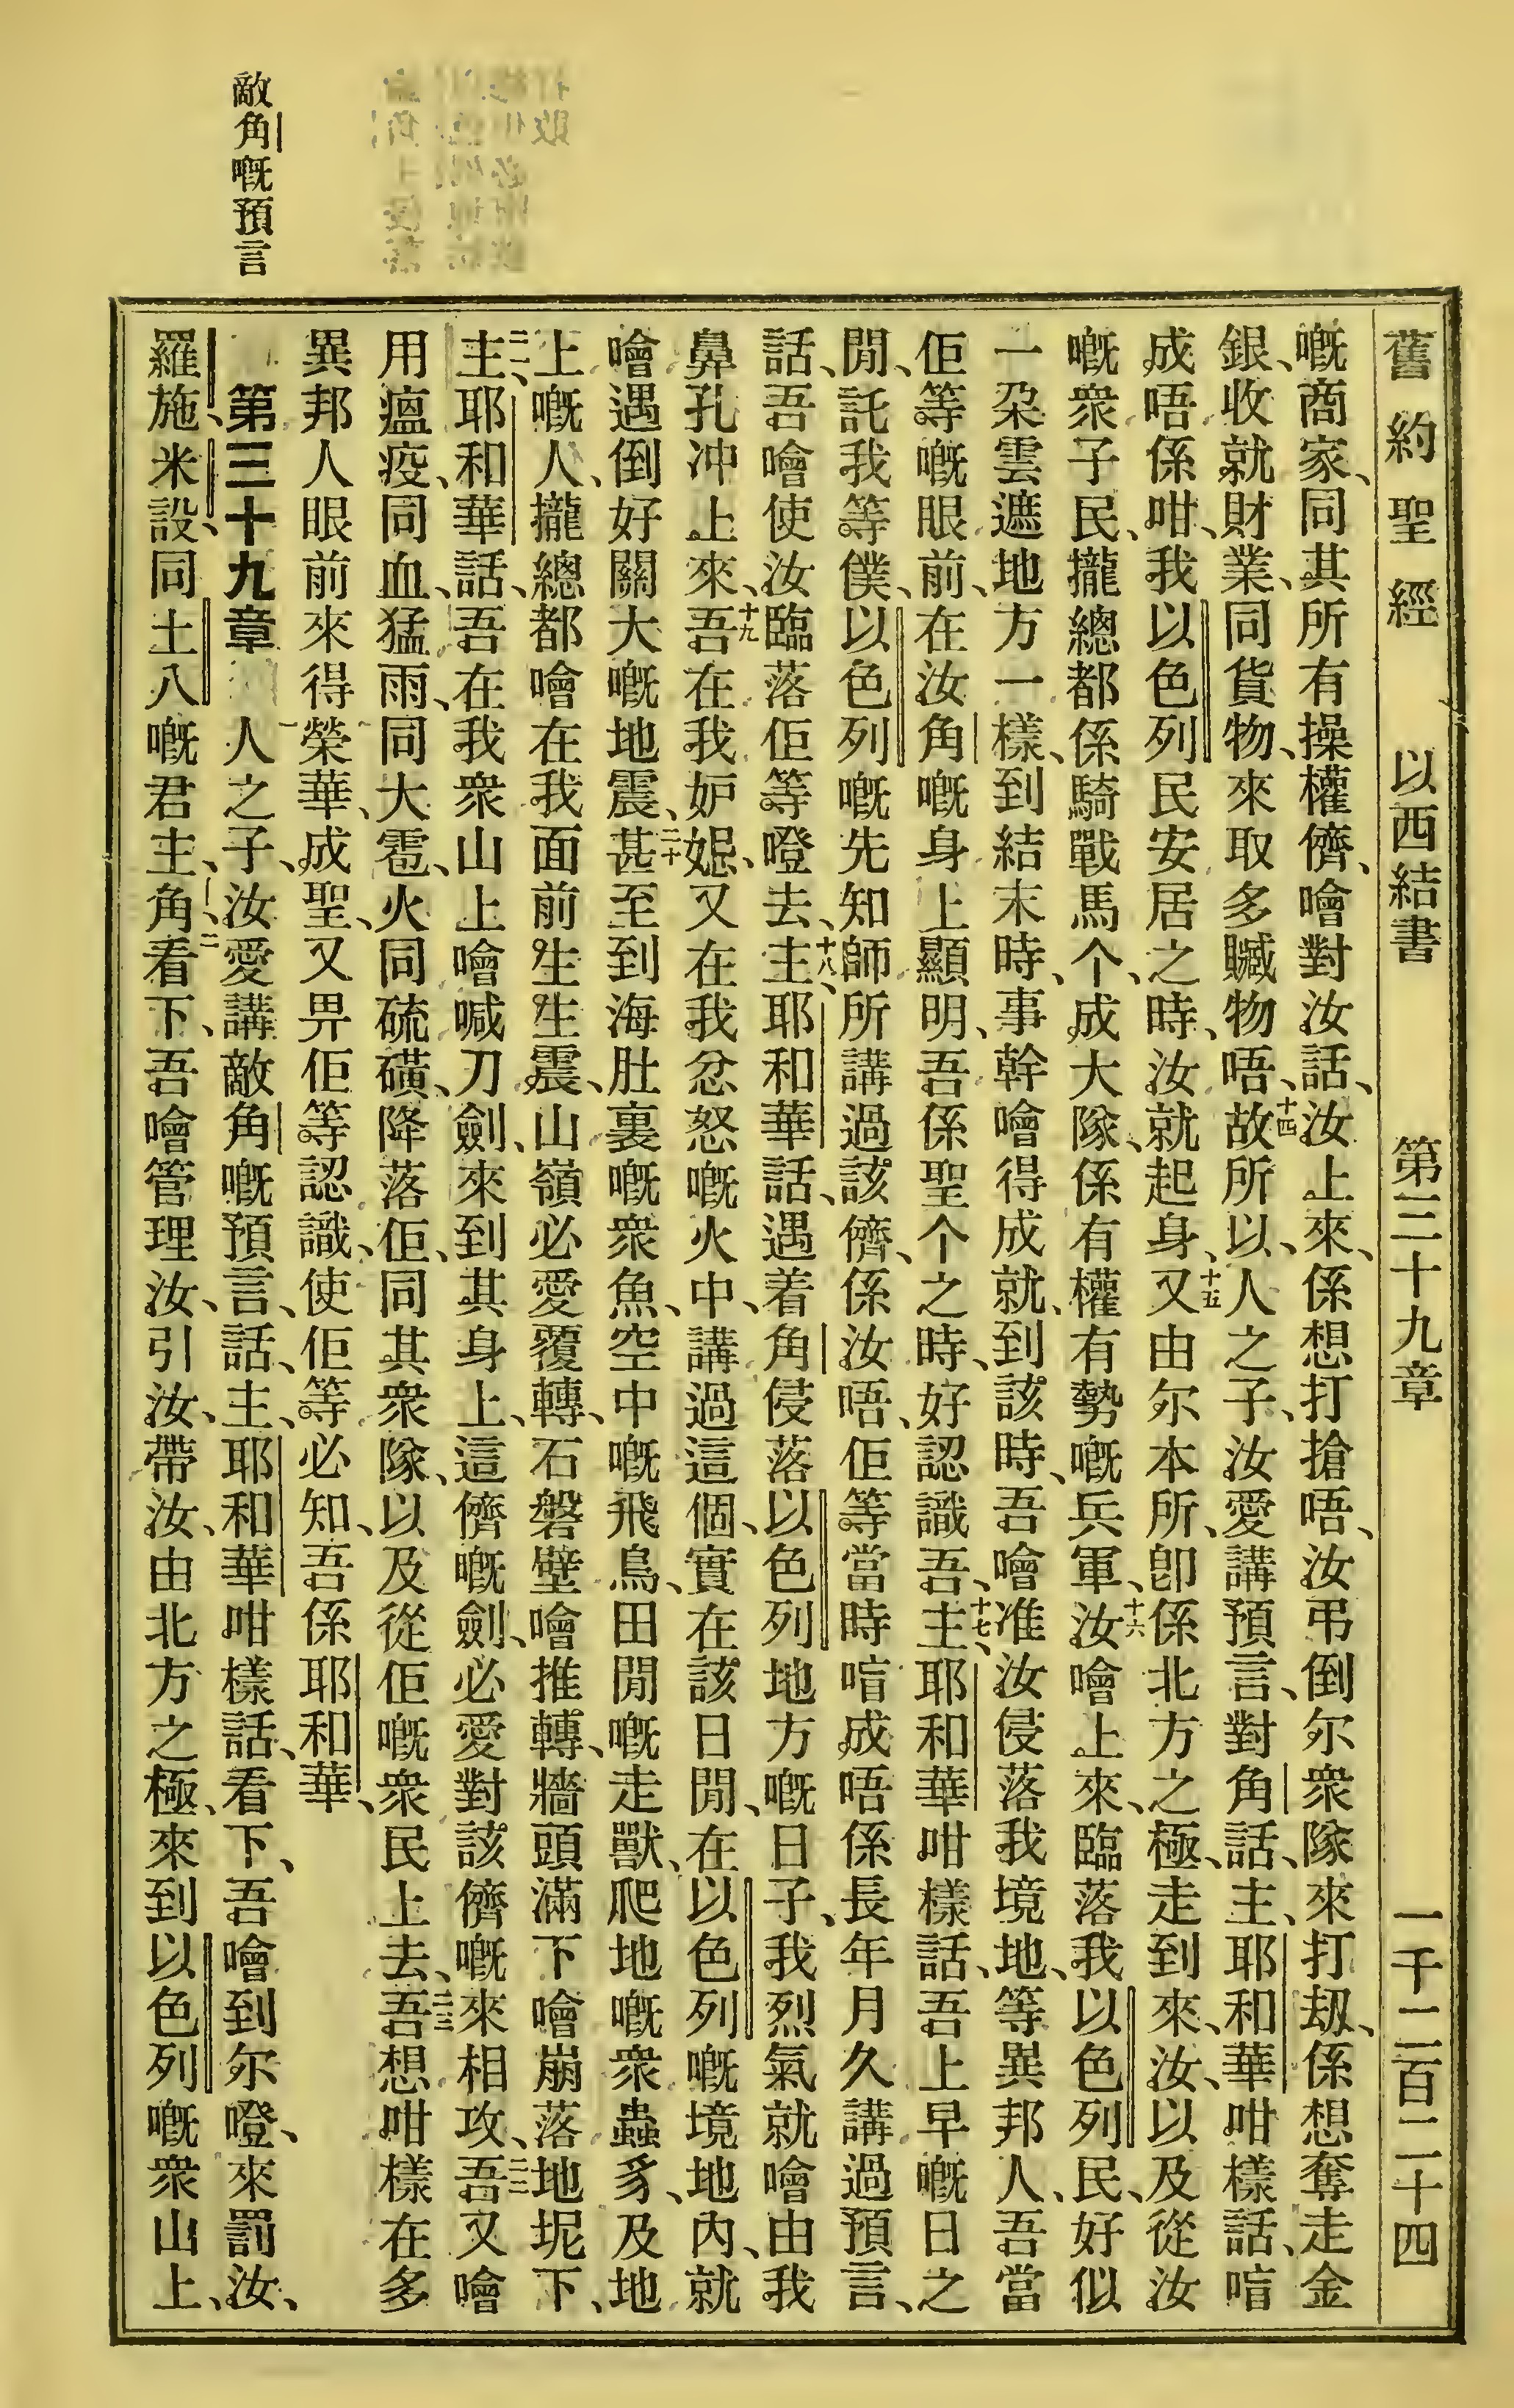 舊約聖經　以西結書　第三十九章　一千二百二十四
嘅商家、同其所有操權儕、噲對汝話、汝上來、係想打搶唔、汝弔倒尔衆隊來打刼、係想奪走金
銀、收就財業、同貨物、來取多贓物唔、十四故所以、人之子、汝愛講預言、對角話、主、耶和華咁樣話、喧
成唔係咁、我以色列民安居之時、汝就起身、十五又由尔本所、卽係北方之極、走到來、汝、以及從汝
嘅衆子民、攏總都係騎戰馬个、成大隊、係有權有勢嘅兵軍、十六汝噲上來、臨落我以色列民、好似
一朶雲遮地方一樣、到結末時、事幹噲得成就、到該時、吾噲准汝侵落我境地、等異邦人、吾當
佢等嘅眼前、在汝角嘅身上顯明、吾係聖个之時、好認識吾、十七主、耶和華咁樣話、吾上早嘅日之
閒、託我等僕、以色列嘅先知師所講過該儕、係汝唔、佢等當時喧成唔係長年月久講過預言、
話、吾噲使汝臨落佢等嶝去、十八主、耶和華話、遇着角侵落以色列地方嘅日子、我烈氣就噲由我
鼻孔冲上來、十九吾在我妒㜸、又在我忿怒嘅火中、講過這個、實在該日閒、在以色列嘅境地內、就
噲遇倒好關大嘅地震、二十甚至到海肚裏嘅衆魚、空中嘅飛鳥、田閒嘅走獸、爬地嘅衆蟲豸、及地
上嘅人、攏總都噲在我面前生生震、山嶺必愛覆轉、石磐壁噲推轉、牆頭滿下噲崩落地坭下、
二一主、耶和華話、吾在我衆山上噲喊刀劍、來到其身上、這儕嘅劍、必愛對該儕嘅來相攻、二二吾又噲
用瘟疫、同血、猛雨、同大雹、火同硫磺、降落佢、同其衆隊、以及從佢嘅衆民上去、二三吾想咁樣在多
異邦人眼前來得榮華、成聖、又畀佢等認識、使佢等必知、吾係耶和華、
第三十九章　一人之子、汝愛講敵角嘅預言、話、主、耶和華咁樣話、看下、吾噲到尔嶝、來罰汝、
羅施、米設、同土八嘅君主、角、二看下、吾噲管理汝、引汝、帶汝、由北方之極、來到以色列嘅衆山上、
敵角嘅預言